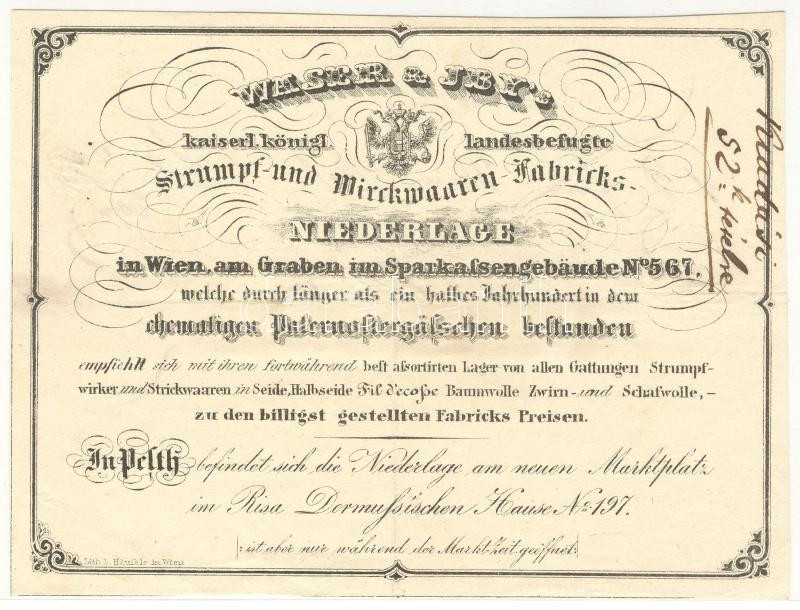 WASER & JBY's
kaiserl. königl. landesbefugte
Strumpf- und Wirckwaaren Fabricks-
NIEDERLAGE
in Wien, am Graben im Sparkaſsengebäude No 567,
welche durch länger als ein halbes Jahrhundert in dem
ehemaligen Paternoſtergäſschen beſtanden
empfiehlt sich mit ihren fortwährend beſt aſsortirten Lager von allen Gattungen Strumpf-
wirker und Strickwaaren in Seide, Halbseide Fil d'ecoſse Baumwolle Zwirn- und Schafwolle, –
zu den billigst gestellten Fabricks Preisen.
In Peſth befindet sich die Niederlage am neuen Marktplatz
im Risa Dormuſsischen Hause No 197.
:ist aber nur während der Markt-Zeit geöffnet:
Lith. b. Häufsle in Wien
52